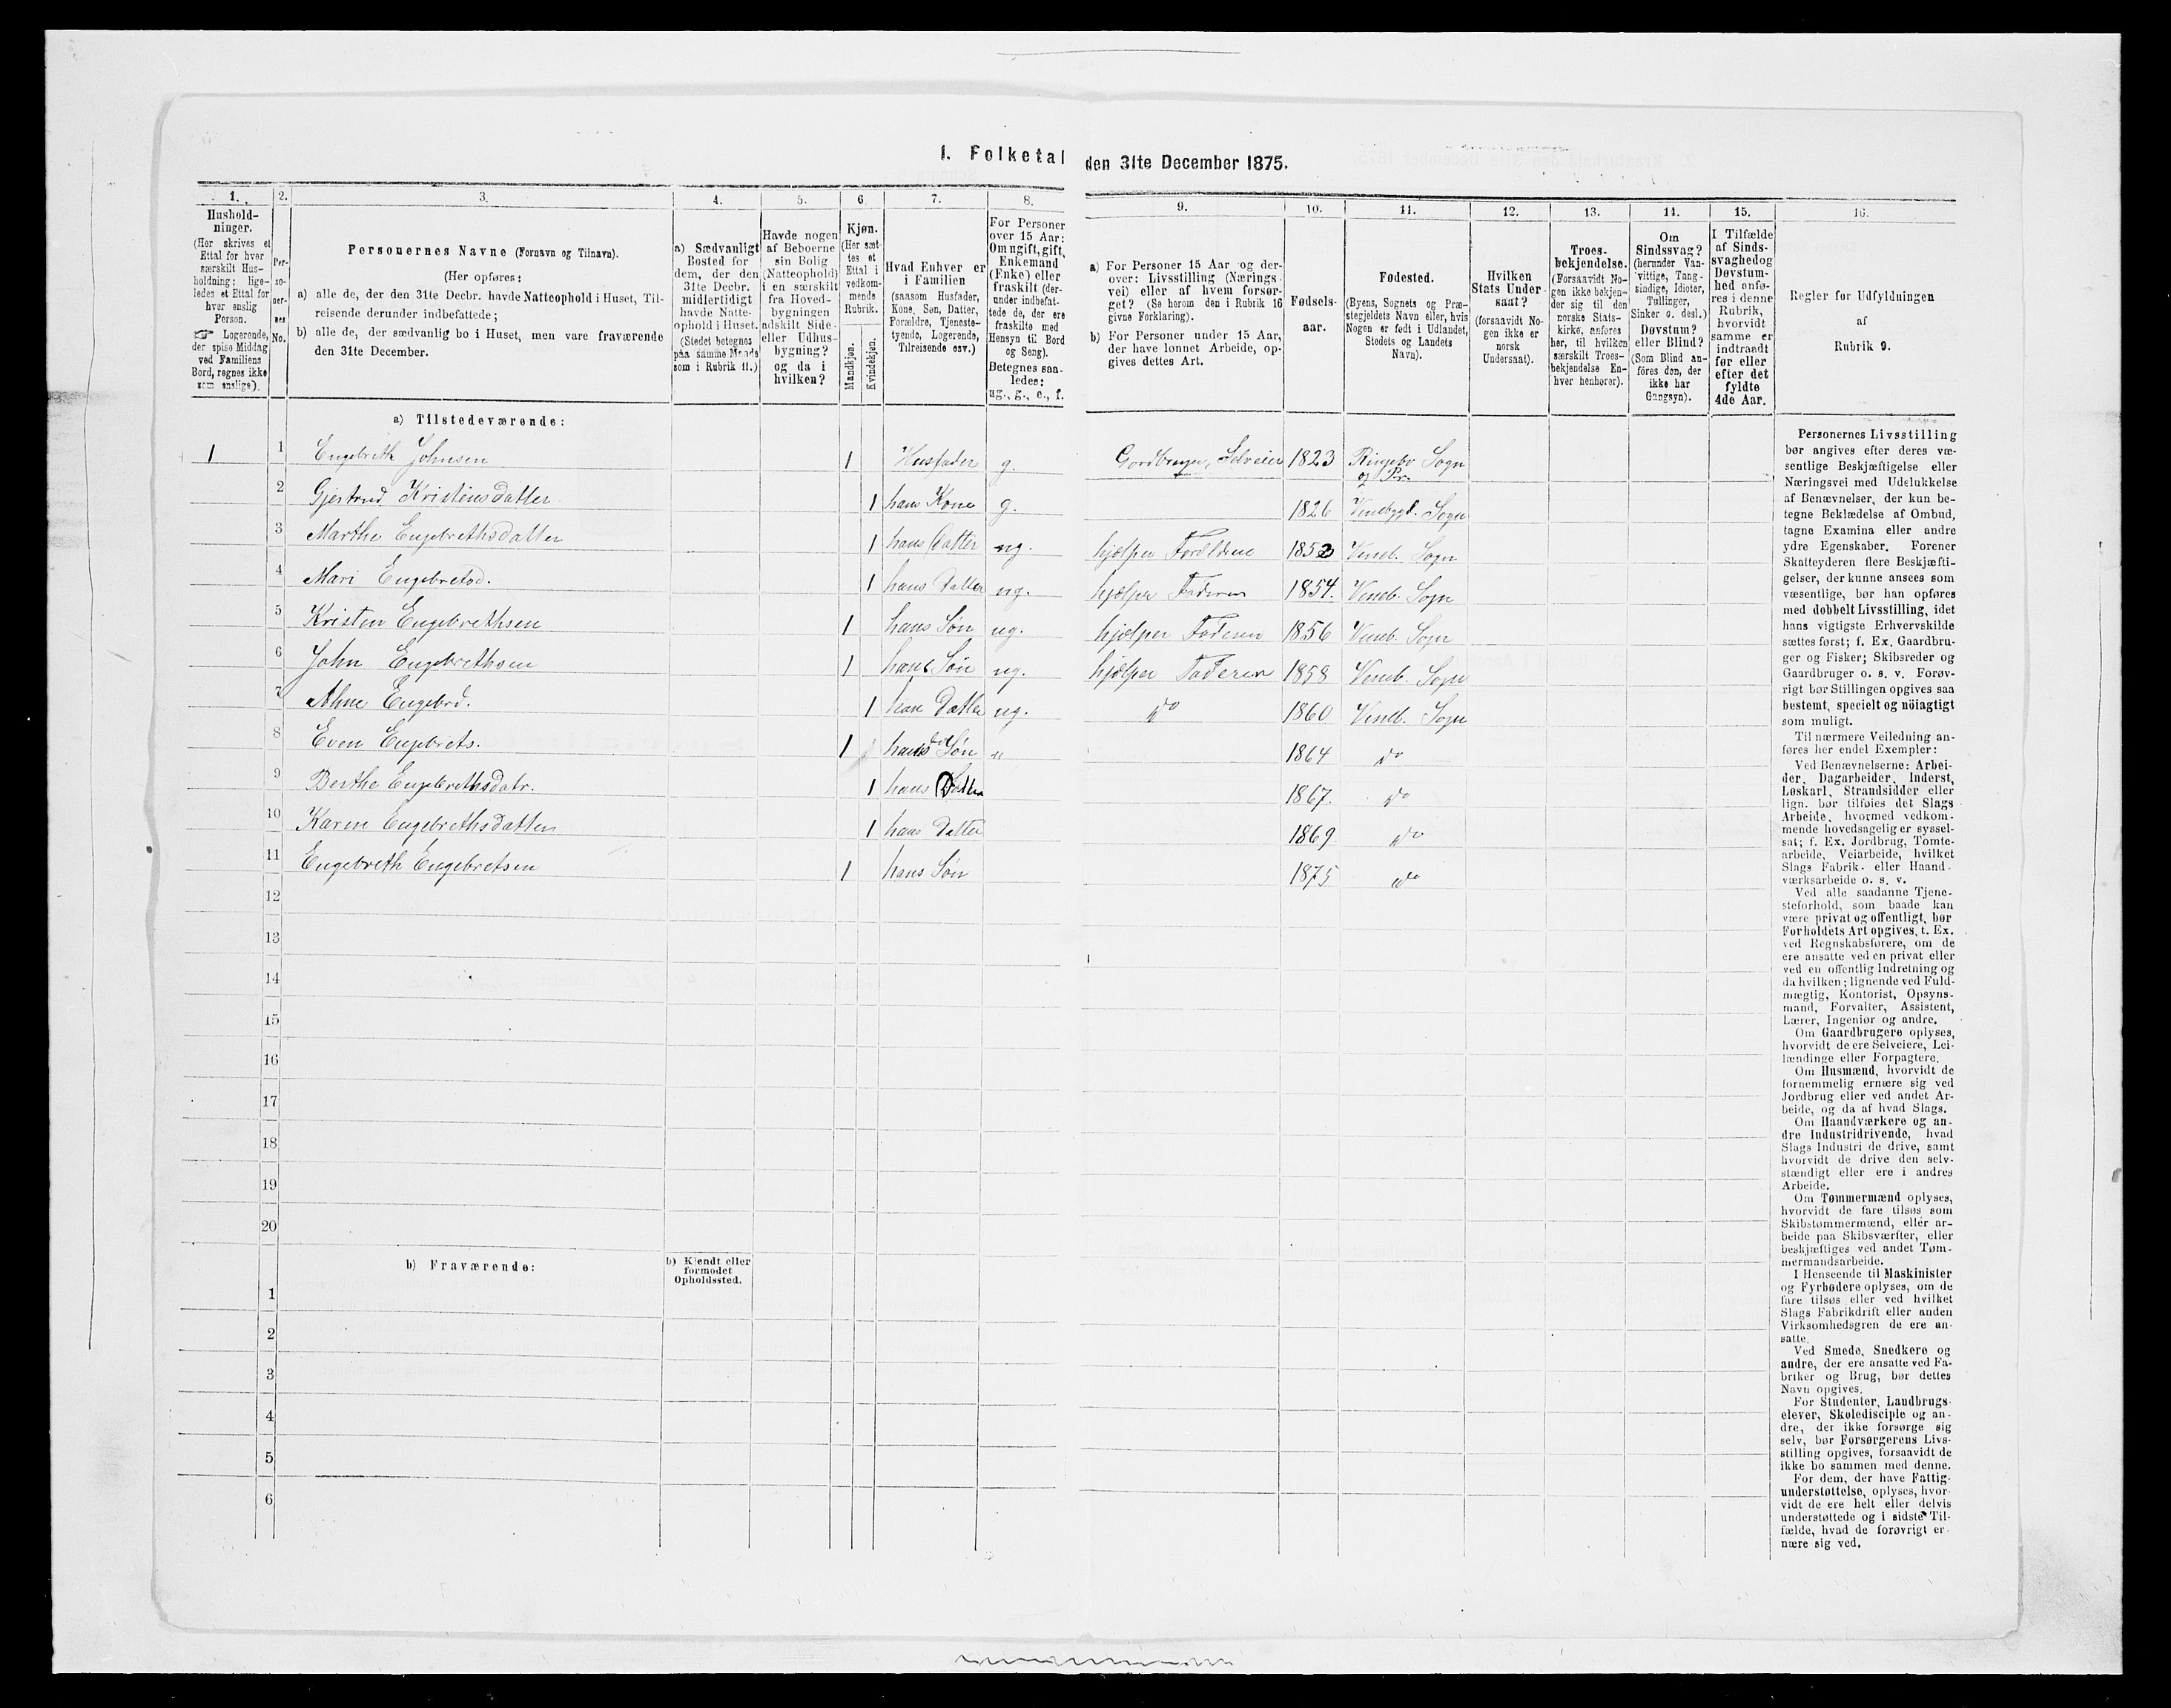 1. Folketal den 31te December 1875.
1.
Hushold-
ninger.
(Her skrives et
Ettal for hver
særskilt Hus-
holdning; lige-
ledes et Ettal for
hver enslig
Person.
☞ Logerende,
der spise Middag
ved Familiens
Bord, regnes ikke
som enslige).
2.
Per-
so-
ner-
nes
No.
3.
Personernes Navne (Fornavn og Tilnavn).
(Her opføres:
a) alle de, der den 31te Decbr. havde Natteophold i Huset, Til-
reisende derunder indbefattede;
b) alle de, der sædvanlig bo i Huset, men vare fraværende
den 31te December.
4.
a) Sædvanligt
Bosted for
dem, der den
31te Decbr.
midlertidigt
havde Natte-
ophold i Huset.
(Stedet betegnes
paa samme Maade
som i Rubrik 11.)
5.
Havde nogen
af Beboerne
sin Bolig
(Natteophold)
i en særskilt
fra Hoved-
bygningen
adskilt Side-
eller Udhus-
bygning?
og da i
hvilken?
6.
Kjøn.
(Her sæt-
tes et
Ettal i
vedkom-
mende
Rubrik.
Mandkjøn.
Kvindekjøn.
7.
Hvad Enhver er
i Familien
(saasom Husfader,
Kone, Søn, Datter,
Forældre, Tjeneste-
tyende, Logerende,
Tilreisende osv.)
8.
For Personer
over 15 Aar:
Om ugift, gift,
Enkemand
(Enke) eller
fraskilt (der-
under indbefat-
tede de, der ere
fraskilte med
Hensyn til Bord
og Seng).
Betegnes saa-
ledes:
ug., g., e., f.
9.
a) For Personer 15 Aar og der-
over: Livsstilling (Nærings-
vei) eller af hvem forsør-
get? (Se herom den i Rubrik 16
givne Forklaring).
b) For Personer under 15 Aar,
der have lønnet Arbeide, op-
gives dettes Art.
10.
Fødsels-
aar.
11.
Fødested.
(Byens, Sognets og Præ-
stegjeldets Navn eller, hvis
Nogen er født i Udlandet,
Stedets og Landets
Navn).
12.
Hvilken
Stats Under-
saat?
(forsaavidt No-
gen ikke er
norsk
Undersaat).
13.
Troes-
bekjendelse.
(Forsaavidt No-
gen ikke bekjen-
der sig til den
norske Stats-
kirke, anføres
her, til hvilken
særskilt Troes-
bekjendelse En-
hver henhører).
14.
Om
Sindssvag?
(herunder Van-
vittige, Tung-
sindige, Idioter,
Tullinger,
Sinker o. desl.)
Døvstum?
eller Blind?
(Som Blind an-
føres den, der
ikke har
Gangsyn).
15.
I Tilfælde
af Sinds-
svaghed og
Døvstum-
hed anfø-
res i denne
Rubrik,
hvorvidt
samme er
indtraadt
før eller
efter det
fyldte
4de Aar.
16.
Regler for Udfyldningen
af
Rubrik 9.
a) Tilstedeværende:
1 1 Engebreth Johnsen 1 Husfader g. Gordbruger, Selveier 1823 Ringebo Sogn
og Pr.
2 Gjertrud Kristensdatter 1 hans Kone g. 1826 Venebygd. Sogn
3 Marthe Engebrethsdatter 1 hans Datter ug. hjælper Forældrene 1852 Veneb. Sogn
4 Mari Engebretsd. 1 hans Datter ug. hjelper Faderen 1854. Veneb. Sogn
5 Kristen Engebrethsen 1 hans Søn ug. hjælper Faderen 1856 Veneb. Sogn
6 John Engebrethsen 1 hans Søn ug. hjælper Faderen 1858 Veneb. Sogn
7 Ahne Engebrd. 1 hans Datter ug. do 1860 Veneb. Sogn
8 Even Engebrets. 1 hans Søn 1864 do
9 Berthe Engebrethsdatr. 1 hans Datter 1867. do
10 Karen Engebrethsdatter 1 hans Datter 1869 do
11 Engebreth Engebretsen 1 hans Søn 1875 do
12
13
14
15
16
17
18
19
20
b) Fraværende:
b) Kjendt eller
formodet
Opholdssted.
1
2
3
4
5
6
Personernes Livsstilling
bør angives efter deres væ-
sentlige Beskjæftigelse eller
Næringsvei med Udelukkelse
af Benævnelser, der kun be-
tegne Beklædelse af Ombud,
tagne Examina eller andre
ydre Egenskaber. Forener
Skatteyderen flere Beskjæfti-
gelser, der kunne ansees som
væsentlige, bør han opføres
med dobbelt Livsstilling, idet
hans vigtigste Erhvervskilde
sættes først; f. Ex. Gaardbru-
ger og Fisker; Skibsreder og
Gaardbruger o. s. v. Forøv-
rigt bør Stillingen opgives saa
bestemt, specielt og nöiagtigt
som muligt.
Til nærmere Veiledning an-
føres her endel Exempler:
Ved Benævnelserne: Arbei-
der, Dagarbeider, Inderst,
Løskarl, Strandsidder eller
lign. bør tilføies det Slags
Arbeide, hvormed vedkom-
mende hovedsagelig er syssel-
sat; f. Ex. Jordbrug, Tomte-
arbeide, Veiarbeide, hvilket
Slags Fabrik- eller Haand-
værksarbeide o. s. v.
Ved alle saadanne Tjene-
steforhold, som baade kan
være privat og offentligt, bør
Forholdets Art opgives, t. Ex.
ved Regnskabsførere, om de
ere ansatte ved en privat eller
ved en offentlig Indretning og
da hvilken; lignende ved Fuld-
mægtig, Kontorist, Opsyns-
mand, Forvalter, Assistent,
Lærer, Ingeniør og andre.
Om Gaardbrugere oplyses,
hvorvidt de ere Selveiere, Lei-
lændinge eller Forpagtere.
Om Husmænd, hvorvidt de
fornemmelig ernære sig ved
Jordbrug eller ved andet Ar-
beide, og da af hvad Slags.
Om Haandværkere og an-
dre Industridrivende, hvad
Slags Industri de drive, samt
hvorvidt de drive den selv-
stændigt eller ere i andres
Arbeide.
Om Tømmermænd oplyses,
hvorvidt de fare tilsøs som
Skibstømmermænd, eller ar-
beide paa Skibsværfter, eller
beskjæftiges ved andet Tøm-
mermandsarbeide.
I Henseende til Maskinister
og Fyrbødere oplyses, om de
fare tilsøs eller ved hvilket
Slags Fabrikdrift eller anden
Virksomhedsgren de ere an-
satte.
Ved Smede, Snedkere og
andre, der ere ansatte ved Fa-
briker og Brug, bør dettes
Navn opgives.
For Studenter, Landbrugs-
elever, Skoledisciple og an-
dre, der ikke forsørge sig
selv, bør Forsørgerens Livs-
stilling opgives, forsaavidt de
ikke bo sammen med denne.
For dem, der have Fattig-
understøttelse, oplyses, hvor-
vidt de ere helt eller delvis
understøttede og i sidste Til-
fælde, hvad de forøvrigt er-
nære sig ved.